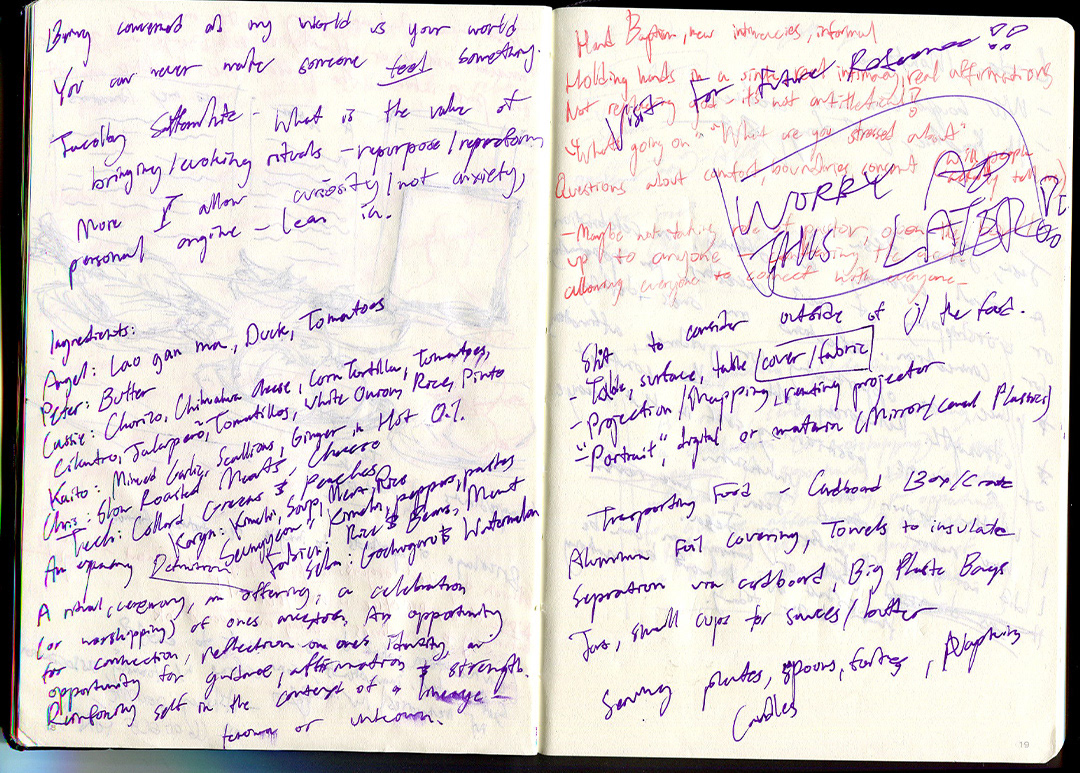 Being concerned as my world is your world
You can never make someone feel something.
Jacolby Satterwhite - What is the value of
bringing/evoking rituals - repurpose/reperform
More I allow curiosity/not anxiety,
personal engine - lean in.
Ingredients:
Angel: Lao gan ma, Duck, Tomatoes
Peter: Butter
Cassie: Chorizo, Chihuahua cheese, Corn Tortilla, Tomatoes,
Cilantro, Jalapeño, Tomatillos, White Onion, Rice, Pinto
Kaito: Minced Garlic, Scallions, Ginger in Hot Oil
Chris: Slow Roasted Meats,
Tech: Collard Greens & Peaches
Karyn: Kimchi, Soup, Meat, Rice
Seungyeon: Kimchi, peppers, pastes
Fabrien: Rice & Beans, Meat
Selm: Gochugaru & Watermelon
An expanding Definition
A ritual, ceremony, an offering, a celebration
(or worshipping) of ones ancestors, An opportunity
for connection, reflection on ones identity, an
opportunity for guidance, affirmation & strength.
Reinforcing self in the context of a lineage -
known or unknown.
Hand Baptism, new intimacies, informal
Holding hands in a intimacy, real affirmations
Not replacing god - it's not antithetical?
"What's going on" "What are you stressed about"
Questions about comfort, boundaries, consent will people actually tell me
- Maybe not taking role of
up to anyone -
allowing everyone to connect with everyone -
Visit For Future Reference !!
WORRY AB
THIS LATER!
Shit to consider outside of j/ the food.
- Table, surface, table/cover/fabric
- Projection/Mapping, renting projector
- "Portrait", digital or material (Mirror/ Plastics)
Transporting Food - Cardboard Box/Crate
Aluminum Foil covering, Towels to insulate
Separation via cardboard, Big Plastic Bags
Jars, small cups for sauces/butter
Serving plates, spoons, forks, Napkins
Candles
19